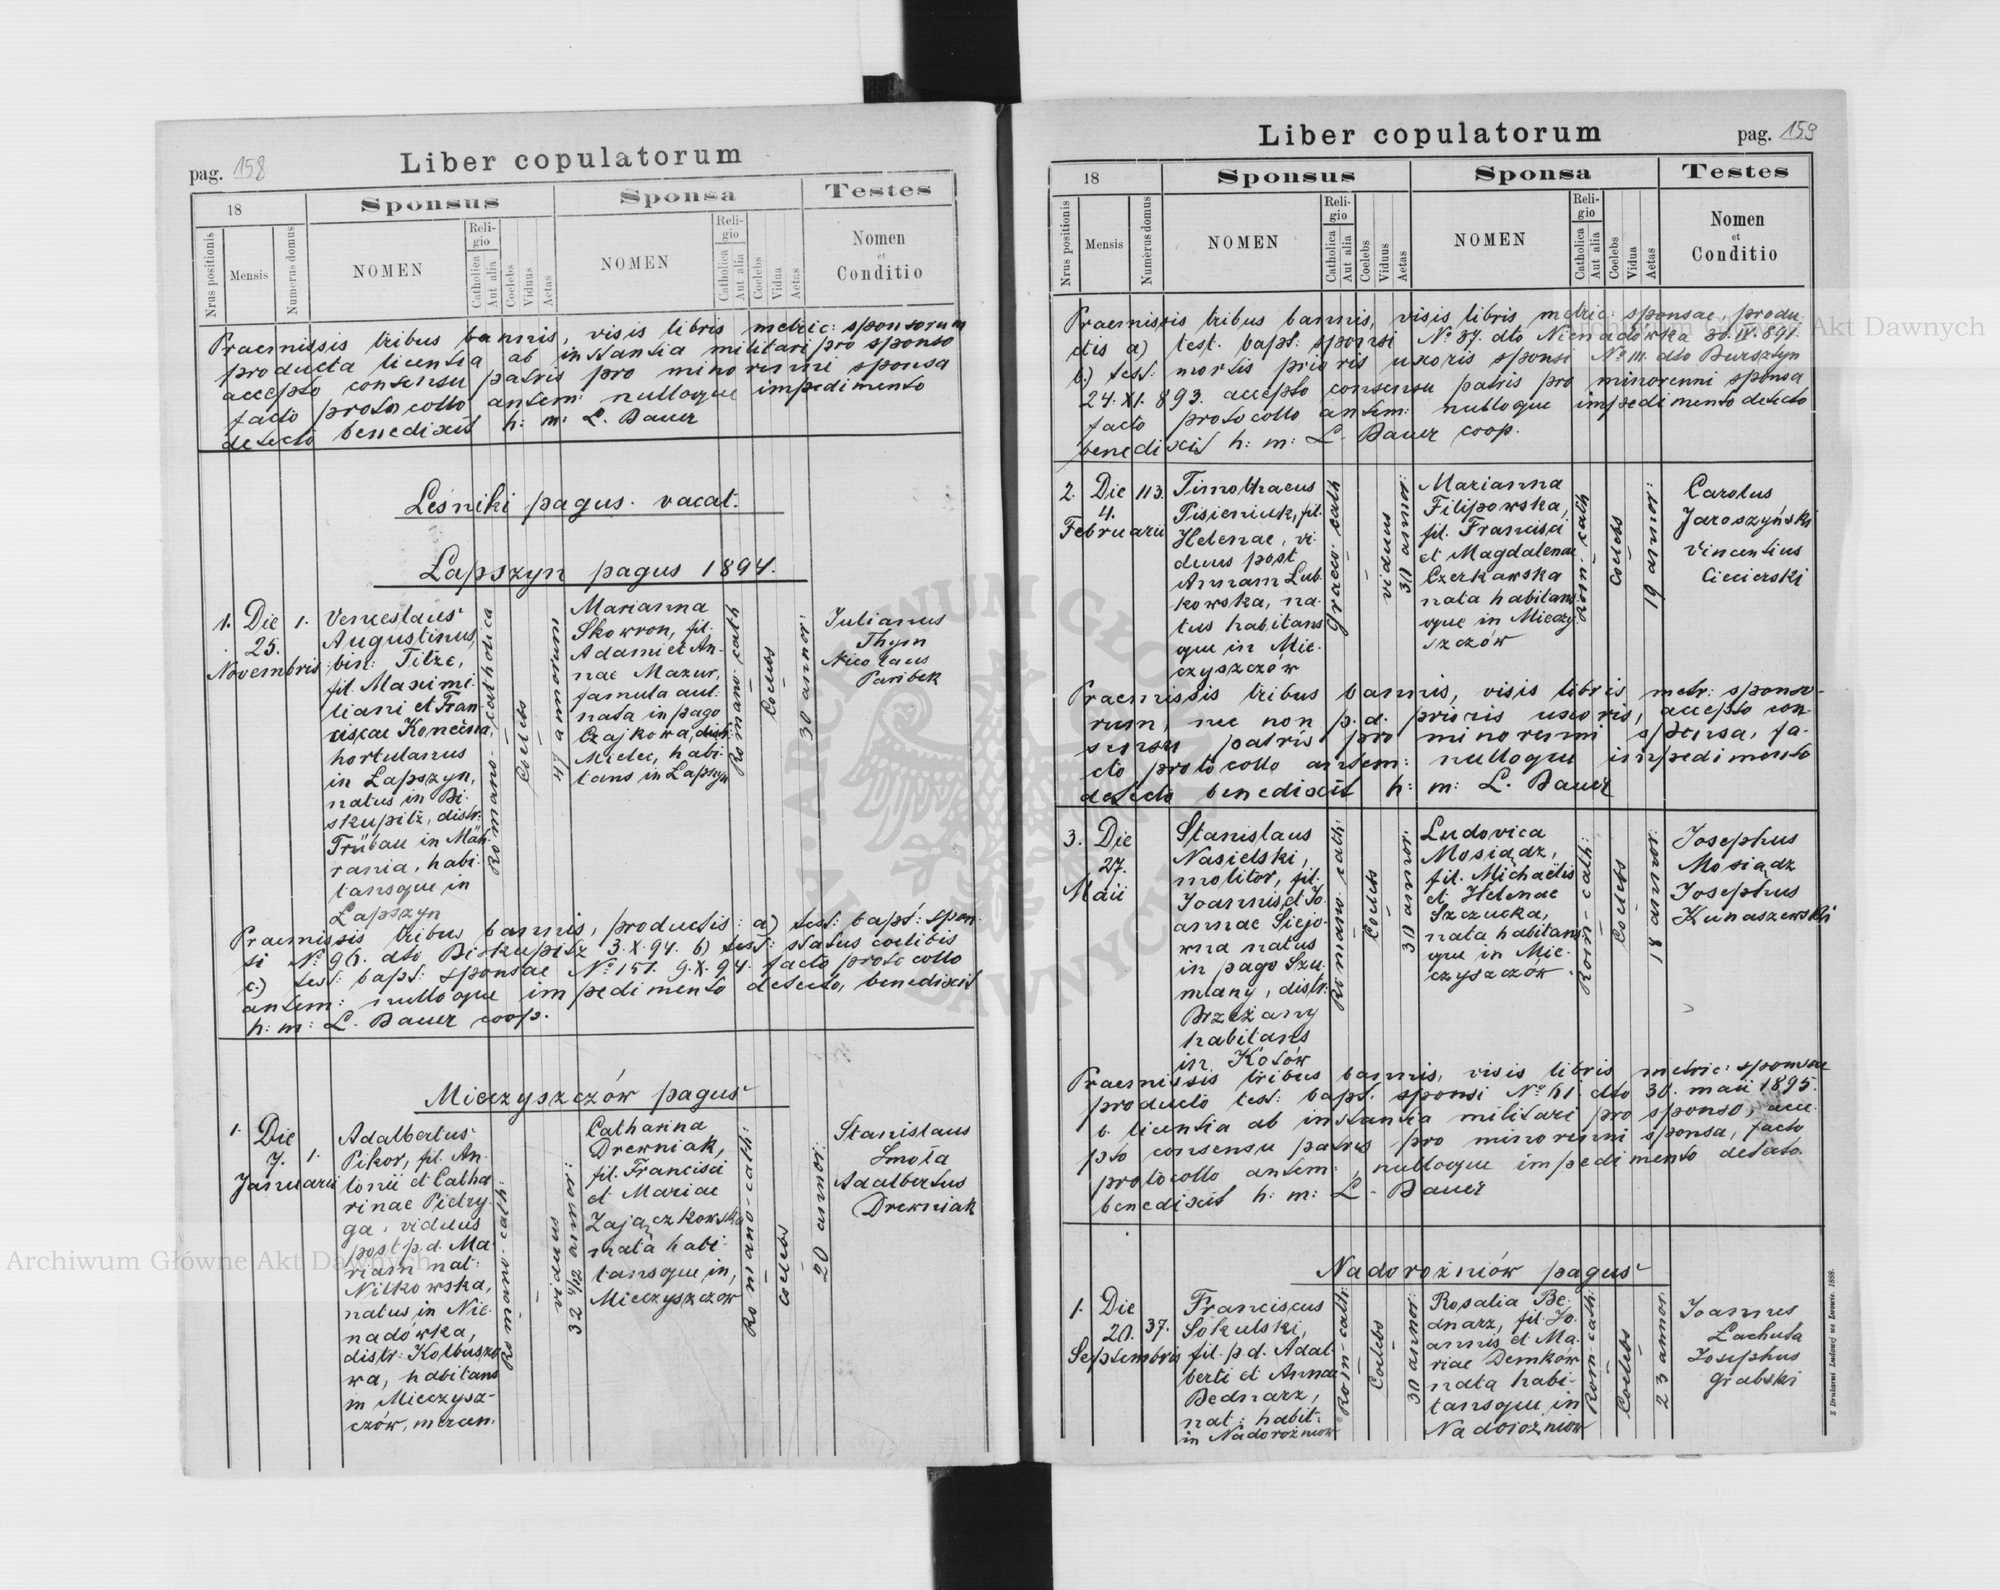 pag. 158
Liber copulatorum
18
Sponsus
Sponsa
Testes
Nrus positionis
Mensis
Numerus domus
NOMEN
Religio
Catholica
Aut alia
Coelebs
Viduus
Aetas
NOMEN
Religio
Catholica
Aut alia
Coelebs
Vidua
Aetas
Nomen
et
Conditio
Praemissis tribus bannis, visis libris metric: sponsorum
producta licentia ab instantia militari pro sponso
accepto consensu patris pro minorenni sponsa
facto protocollo antem: nulloque impedimento
detecto benedixit h: m: L. Bauer
Leśniki pagus. vacat.
Łapszyn pagus 1894.
1. Die
25.
Novembris
1.
Venceslaus
Augustinus,
bin: Titze,
fil. Maximi-
liani et Fran-
ciscae Konečna,
hortulanus
in Łapszyn,
natus in Bi-
skupitz, distr:
Trübau in Mäh-
rania, habi-
tansque in
Łapszyn
Romano-catholica
Coelebs
41 annorum
Marianna
Skowron, fil.
Adami et An-
nae Mazur,
famula aul.
nata in pago
Czajkowa, distr:
Mielec, habi-
tans in Łapszyn
Romano-cath
Coelebs
30 annor:
Julianus
Thym
Nicolaus
Paribek
Praemissis tribus bannis, productis: a) test: bapt: spon-
si No 96. dto Biskupitz 3.X.94. b) test: status coelibis
c.) test: bapt: sponsae No 151. 9.X.94. facto protocollo
antem: nulloque impedimento detecto, benedixit
h: m: L. Bauer coop.
Mieczyszczów pagus
1. Die
7.
Januarii
1.
Adalbertus
Pikor, fil. An-
tonii et Catha-
rinae Pietry-
ga, viduus
post p.d. Ma-
riam nat:
Nitkowska,
natus in Nie-
nadówka,
distr: Kolbuszo
wa, habitans
in Mieczysz-
czów, mercen:
Romano-cath:
viduus
32 1/12 annor:
Catharina
Drewniak,
fil. Francisci
et Mariae
Zajączkowska
nata habi-
tansque in,
Mieczyszczów
Romano-cath:
Coelebs
20 annor:
Stanislaus
Smoła
Adalbertus
Drewniak
Liber copulatorum
pag. 159
18
Sponsus
Sponsa
Testes
Nrus positionis
Mensis
Numerus domus
NOMEN
Religio
Catholica
Aut alia
Coelebs
Viduus
Aetas
NOMEN
Religio
Catholica
Aut alia
Coelebs
Vidua
Aetas
Nomen
et
Conditio
Praemissis tribus bannis, visis libris metric: sponsae, produ-
ctis a) test. bapt: sponsi No 37. dto Nienadówka 30.IV.891.
b.) test: mortis prioris uxoris sponsi No III. dto Bursztyn
24.XI.893. accepto consensu patris pro minorenni sponsa
facto protocollo antem: nulloque impedimento detecto
benedixit h: m: L. Bauer coop.
2. Die
4.
Februarii
113.
Timothaeus
Pisieniuk, fil.
Helenae, vi-
duus post
Annam Lub-
kowska, na-
tus habitans
que in Mie-
czyszczów
Graeco-cath
viduus
30 annor:
Marianna
Filipowska,
fil. Francisci
et Magdalenae
Czerkawska
nata habitans
que in Mieczy
szczów
Rom-cath
Coelebs
19 annor:
Carolus
Jaroszyński
Vincentius
Ciecierski
Praemissis tribus bannis, visis libris metr: sponso-
rum, nec non p.d. prioris uxoris, accepto con-
sensu patris pro minorenni sponsa, fa-
cto protocollo antem: nulloque impedimento
detecto benedixit h: m: L. Bauer
3. Die
27.
Maii
Stanislaus
Nasielski,
molitor, fil.
Joannis et Jo-
annae Siejo-
wna natus
in pago Szu-
mlany, distr:
Brzeżany
habitans
in Kotów
Romano-cath:
Coelebs
30 annor:
Ludovica
Mosiądz,
fil. Michaëlis
et Helenae
Szczucka,
nata habitans
que in Mie-
czyszczów.
Rom-cath:
Coelebs
18 annor:
Josephus
Mosiądz
Josephus
Kunaszewski
Praemissis tribus bannis, visis libris metric: sponsae
producto test: bapt. sponsi No 61. dto 30. maii 1895.
b. licentia ab instantia militari pro sponso, acce-
pto consensu patris pro minorenni sponsa, facto
protocollo antem:, nulloque impedimento detecto
benedixit h: m: L. Bauer
Nadorożniów pagus
1. Die
20.
Septembris
37.
Franciscus
Sokulski,
fil. p.d. Adal-
berti et Annae
Bednarz,
nat: habit:
in Nadorożniow
Rom-cath:
Coelebs
30 annor:
Rosalia Be-
dnarz, fil. Jo-
annis et Ma-
riae Demków
nata habi-
tansque in
Nadorożniow
Rom-cath:
Coelebs
23 annor:
Joannes
Lachuta
Josephus
Grabski
Z Drukarni Ludowej we Lwowie. 1888.
Archiwum Główne Akt Dawnych
Archiwum Główne Akt Dawnych
ARCHIWUM GŁÓWNE AKT DAWNYCH